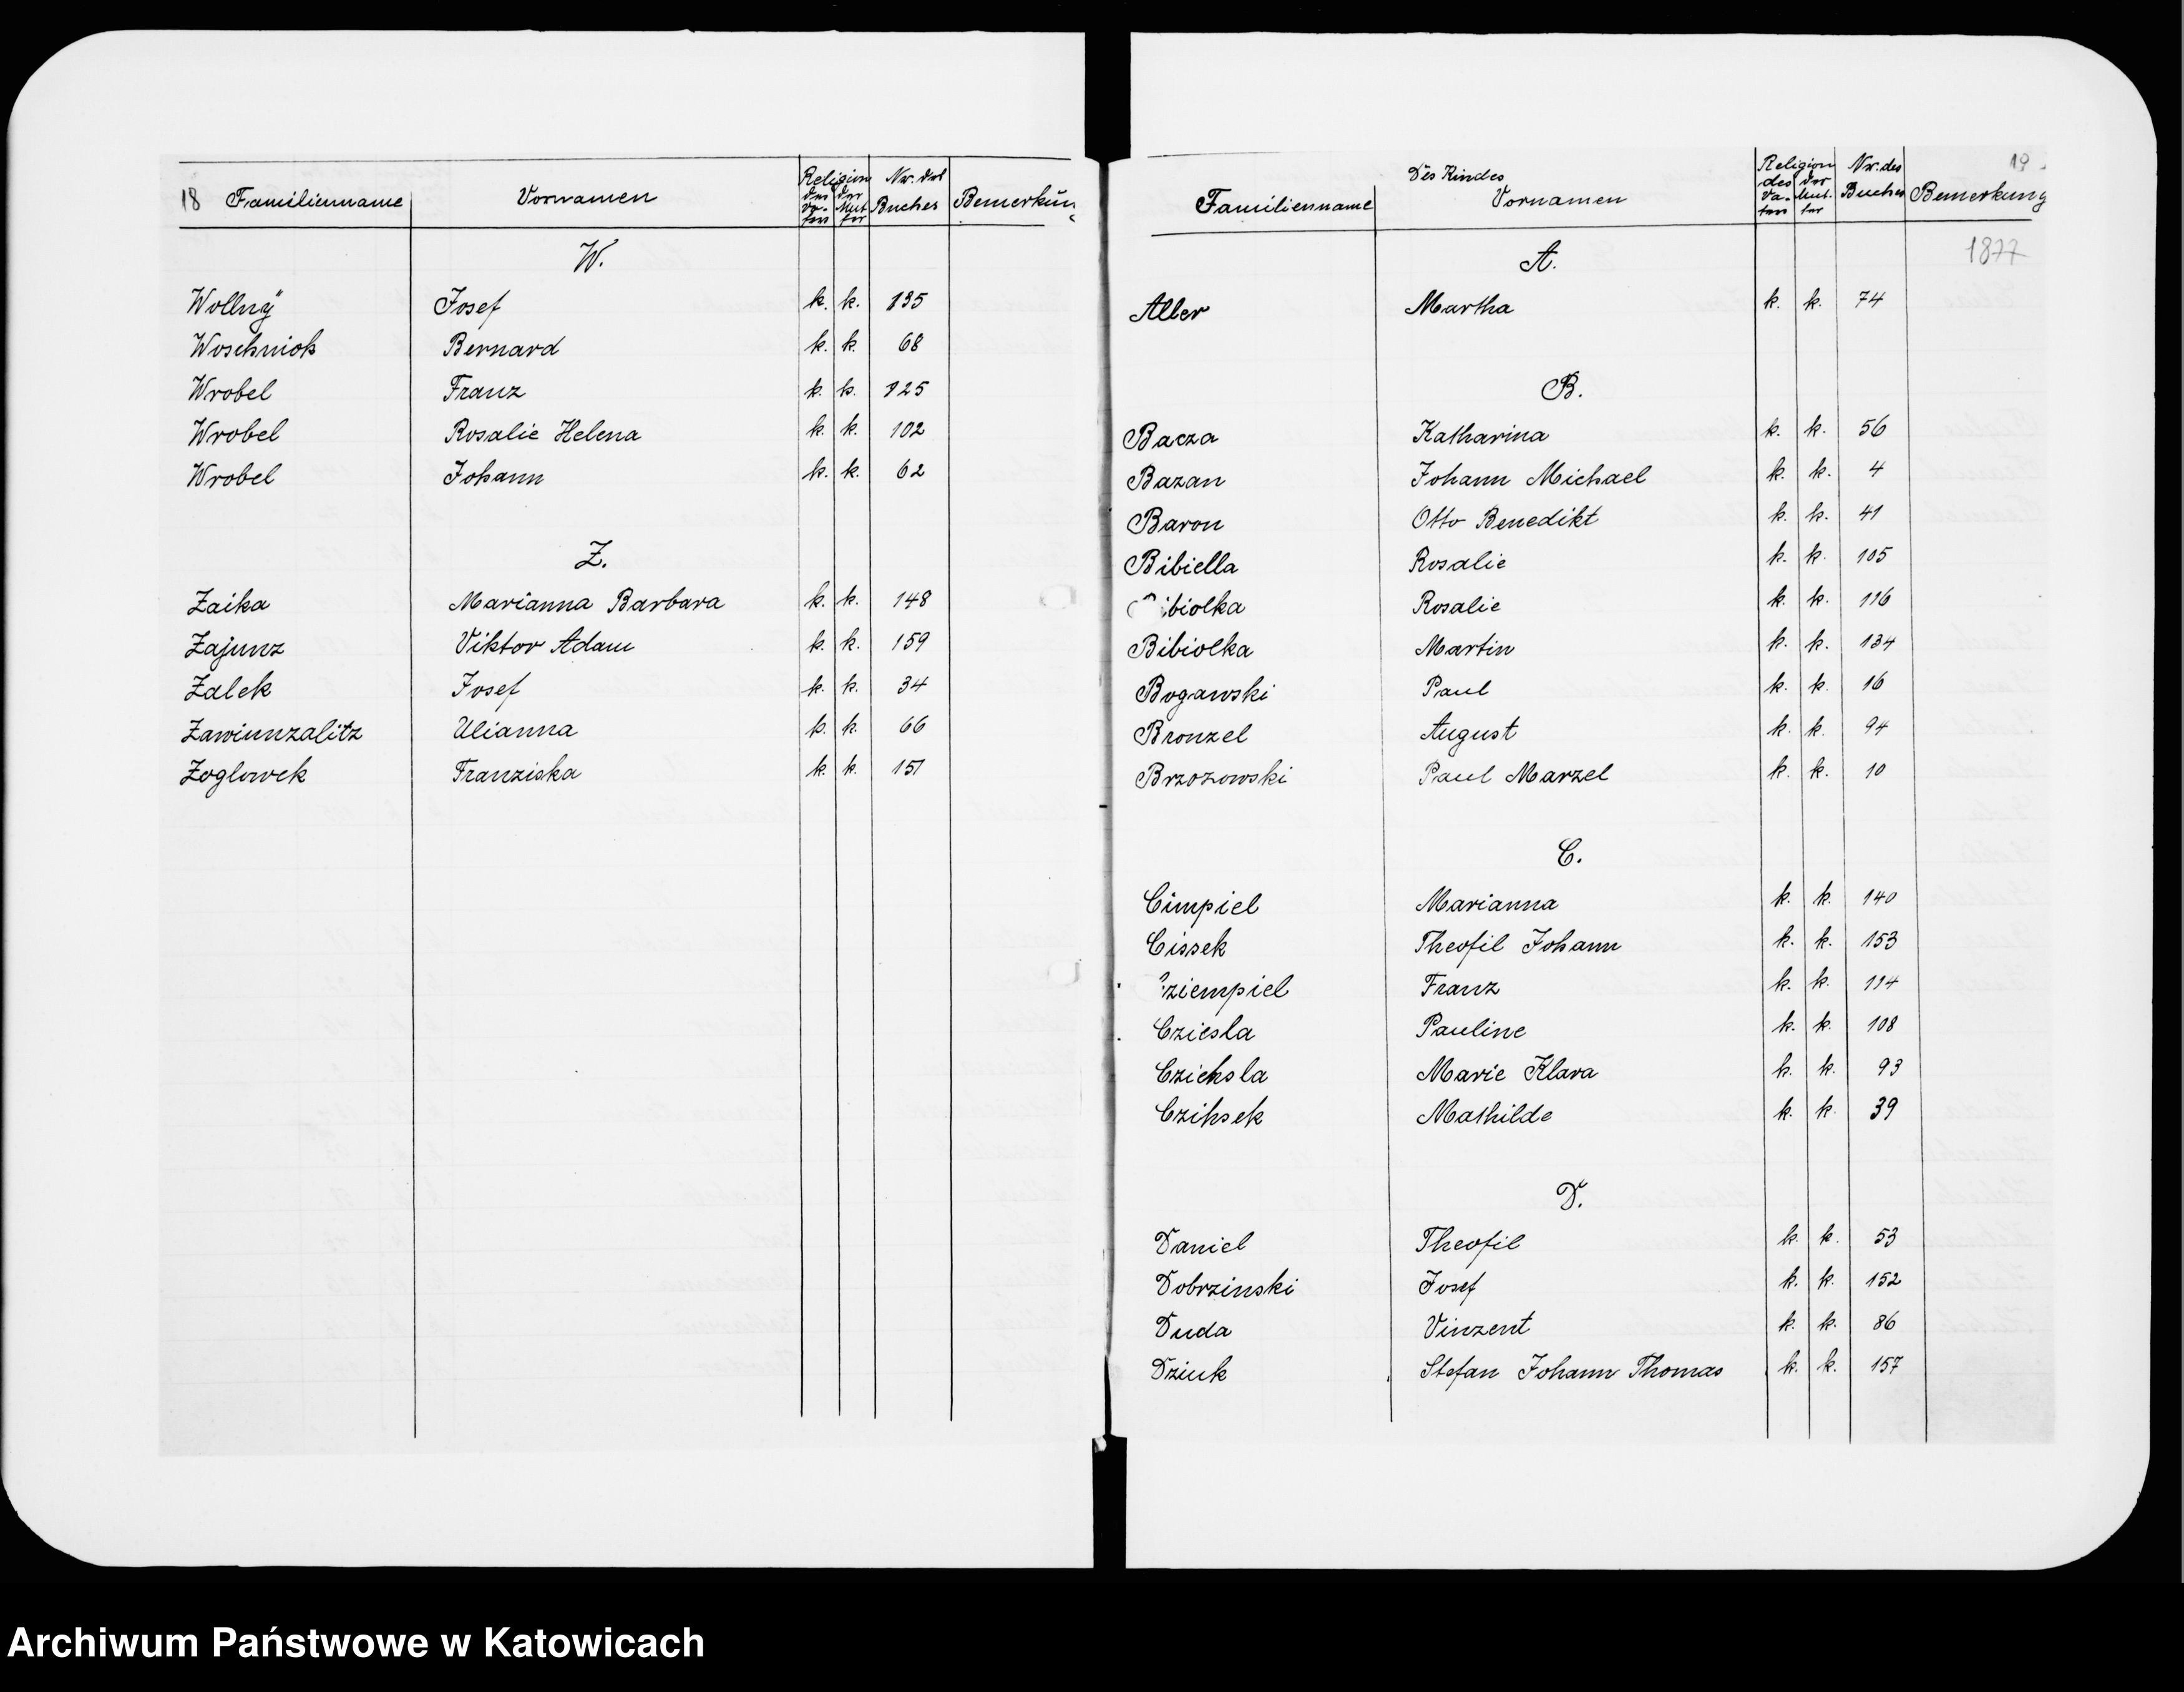 18 Familienname Vornamen Religion des Vaters der Mutter Nr. des Buches Bemerkung
W.
Wollny Josef k. k. 135
Woschniok Bernard k. k. 68
Wrobel Franz k. k. 125
Wrobel Rosalie Helena k. k. 102
Wrobel Johann k. k. 62
Z.
Zaika Marianna Barbara k. k. 148
Zajunz Viktor Adam k. k. 159
Zalek Josef k. k. 34
Zawiunzalitz Ulianna k. k. 66
Zoglowek Franziska k. k. 151
19
Des Kindes
Familienname Vornamen Religion des Vaters der Mutter Nr. des Buches Bemerkung
1877
A.
Aller Martha k. k. 74
B.
Bacza Katharina k. k. 56
Bazan Johann Michael k. k. 4
Baron Otto Benedikt k. k. 41
Bibiella Rosalie k. k. 105
ibiolka Rosalie k. k. 116
Bibiolka Martin k. k. 134
Bogawski Paul k. k. 16
Bronzel August k. k. 94
Brzozowski Paul Marzel k. k. 10
C.
Cimpiel Marianna k. k. 140
Cissek Theofil Johann k. k. 153
ziempiel Franz k. k. 114
Cziesla Pauline k. k. 108
Cziehsla Marie Klara k. k. 93
Czihsek Mathilde k. k. 39
D.
Daniel Theofil k. k. 53
Dobrzinski Josef k. k. 152
Duda Vinzent k. k. 86
Dziuk Stefan Johann Thomas k. k. 157
Archiwum Państwowe w Katowicach